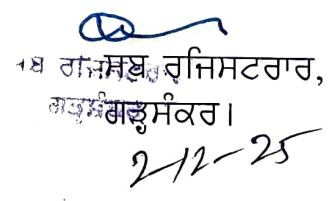 ਸਬ ਰਜਿਸਟਰਾਰ,
ਗੜ੍ਹਸ਼ੰਕਰ।
2-12-25